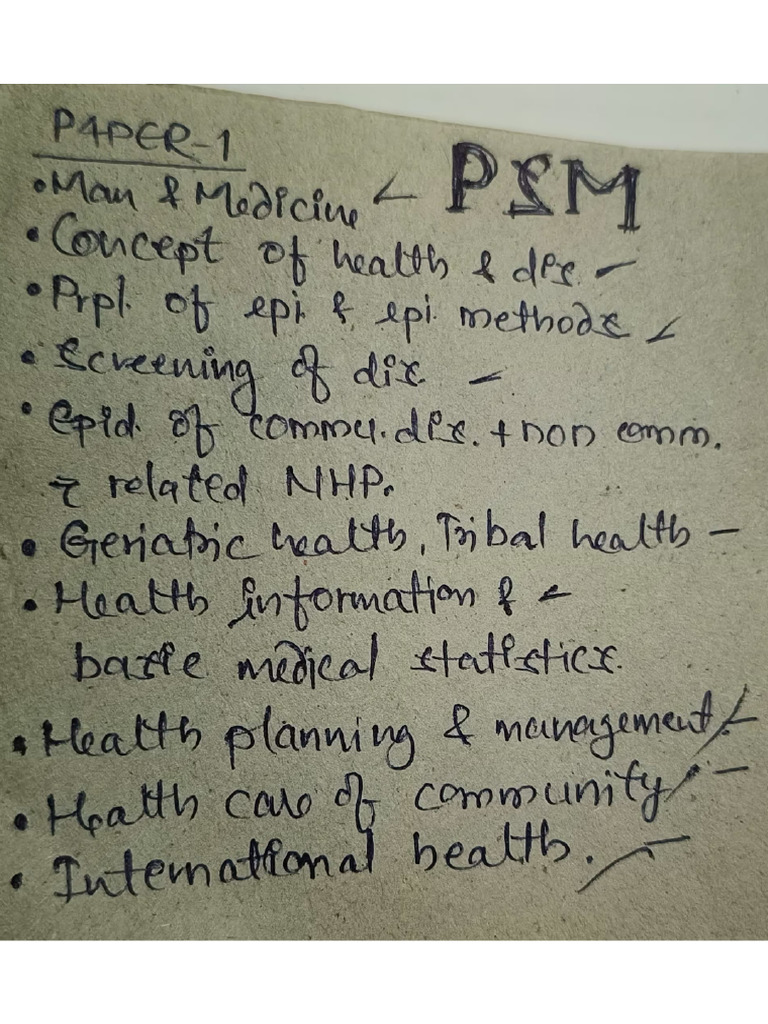 PAPER-1
PSM
• Man & Medicine
• Concept of health & dis.
• Prpl. of epi. & epi. methods
• Screening of dis.
• Epid. of commu. dis. + non comm.
c̄ related NHP.
• Geriatric health, Tribal health
• Health information &
basic medical statistics.
• Health planning & management
• Health care of community
• International health.